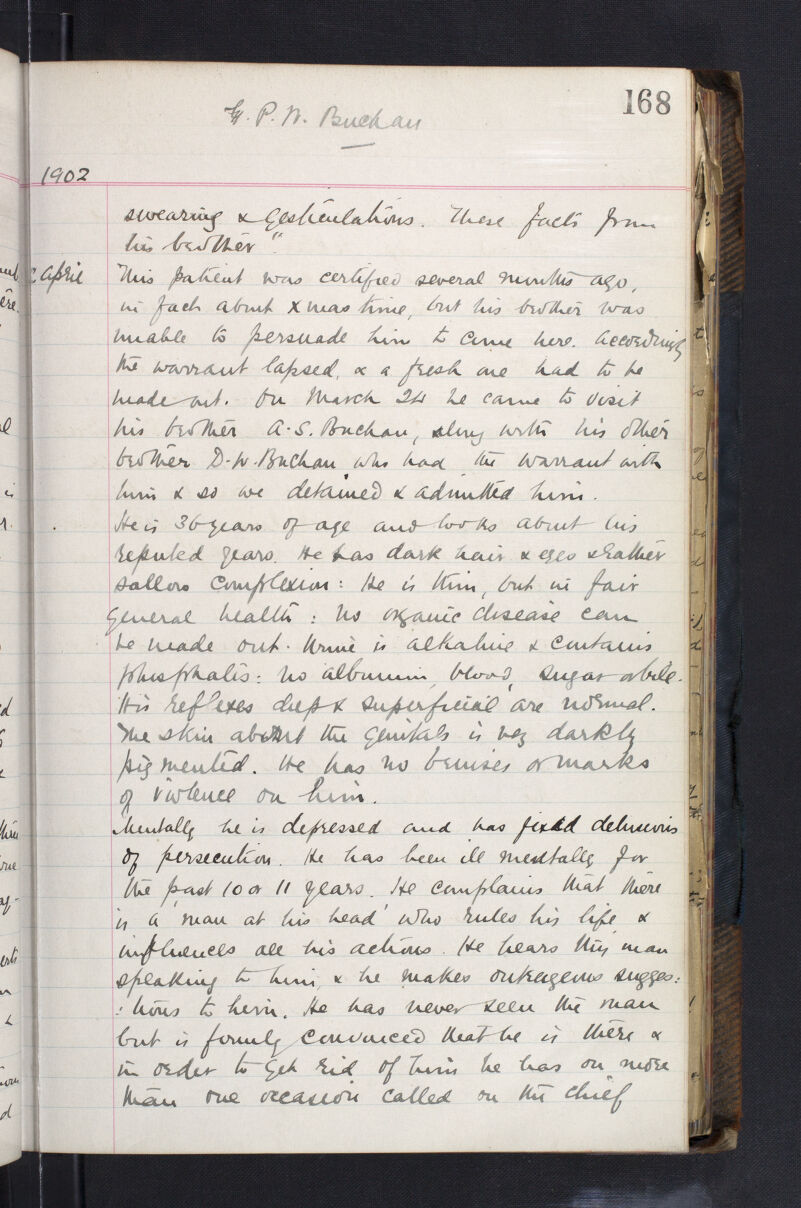 168
G. P. W. Buchan
1902
swearing & gesticulations. These facts from
his brother".
April This patient was certified several months ago,
in fact about Xmas time, but his brother was
unable to persuade him to come here. Accordingly
the warrant lapsed, & a fresh one had to be
made out. On March 24 he came to visit
his brother A. S. Buchan, along with his other
brother D. W. Buchan who had the warrant with
him & so we detained & admitted him.
He is 36 years of age and looks about his
reputed years. He has dark hair & eyes & rather
sallow complexion: He is thin, but in fair
general health: no organic disease can
be made out. Urine is alkaline & contains
phosphates: no albumin, blood, sugar or bile.
His reflexes deep & superficial are normal.
The skin about the genitals is very darkly
pigmented. He has no bruises or marks
of violence on him.
Mentally he is depressed and has fixed delusions
of persecution. He has been ill mentally for
the past 10 or 11 years. He complains that there
is a 'man at his head' who rules his life &
influences all his actions. He hears this man
speaking to him, & he makes outrageous sugges:
:tions to him. He has never seen the man
but is firmly convinced that he is there &
in order to get rid of him he has on more
than one occasion called on the Chief